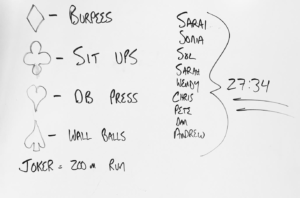 - BURPEES
- SIT UPS
- DB PRESS
- WALL BALLS
JOKER = 200 m RUN
SARAI
SONIA
SOL
SARAH
WENDY
CHRIS
PETE
DAN
ANDREW
27:34